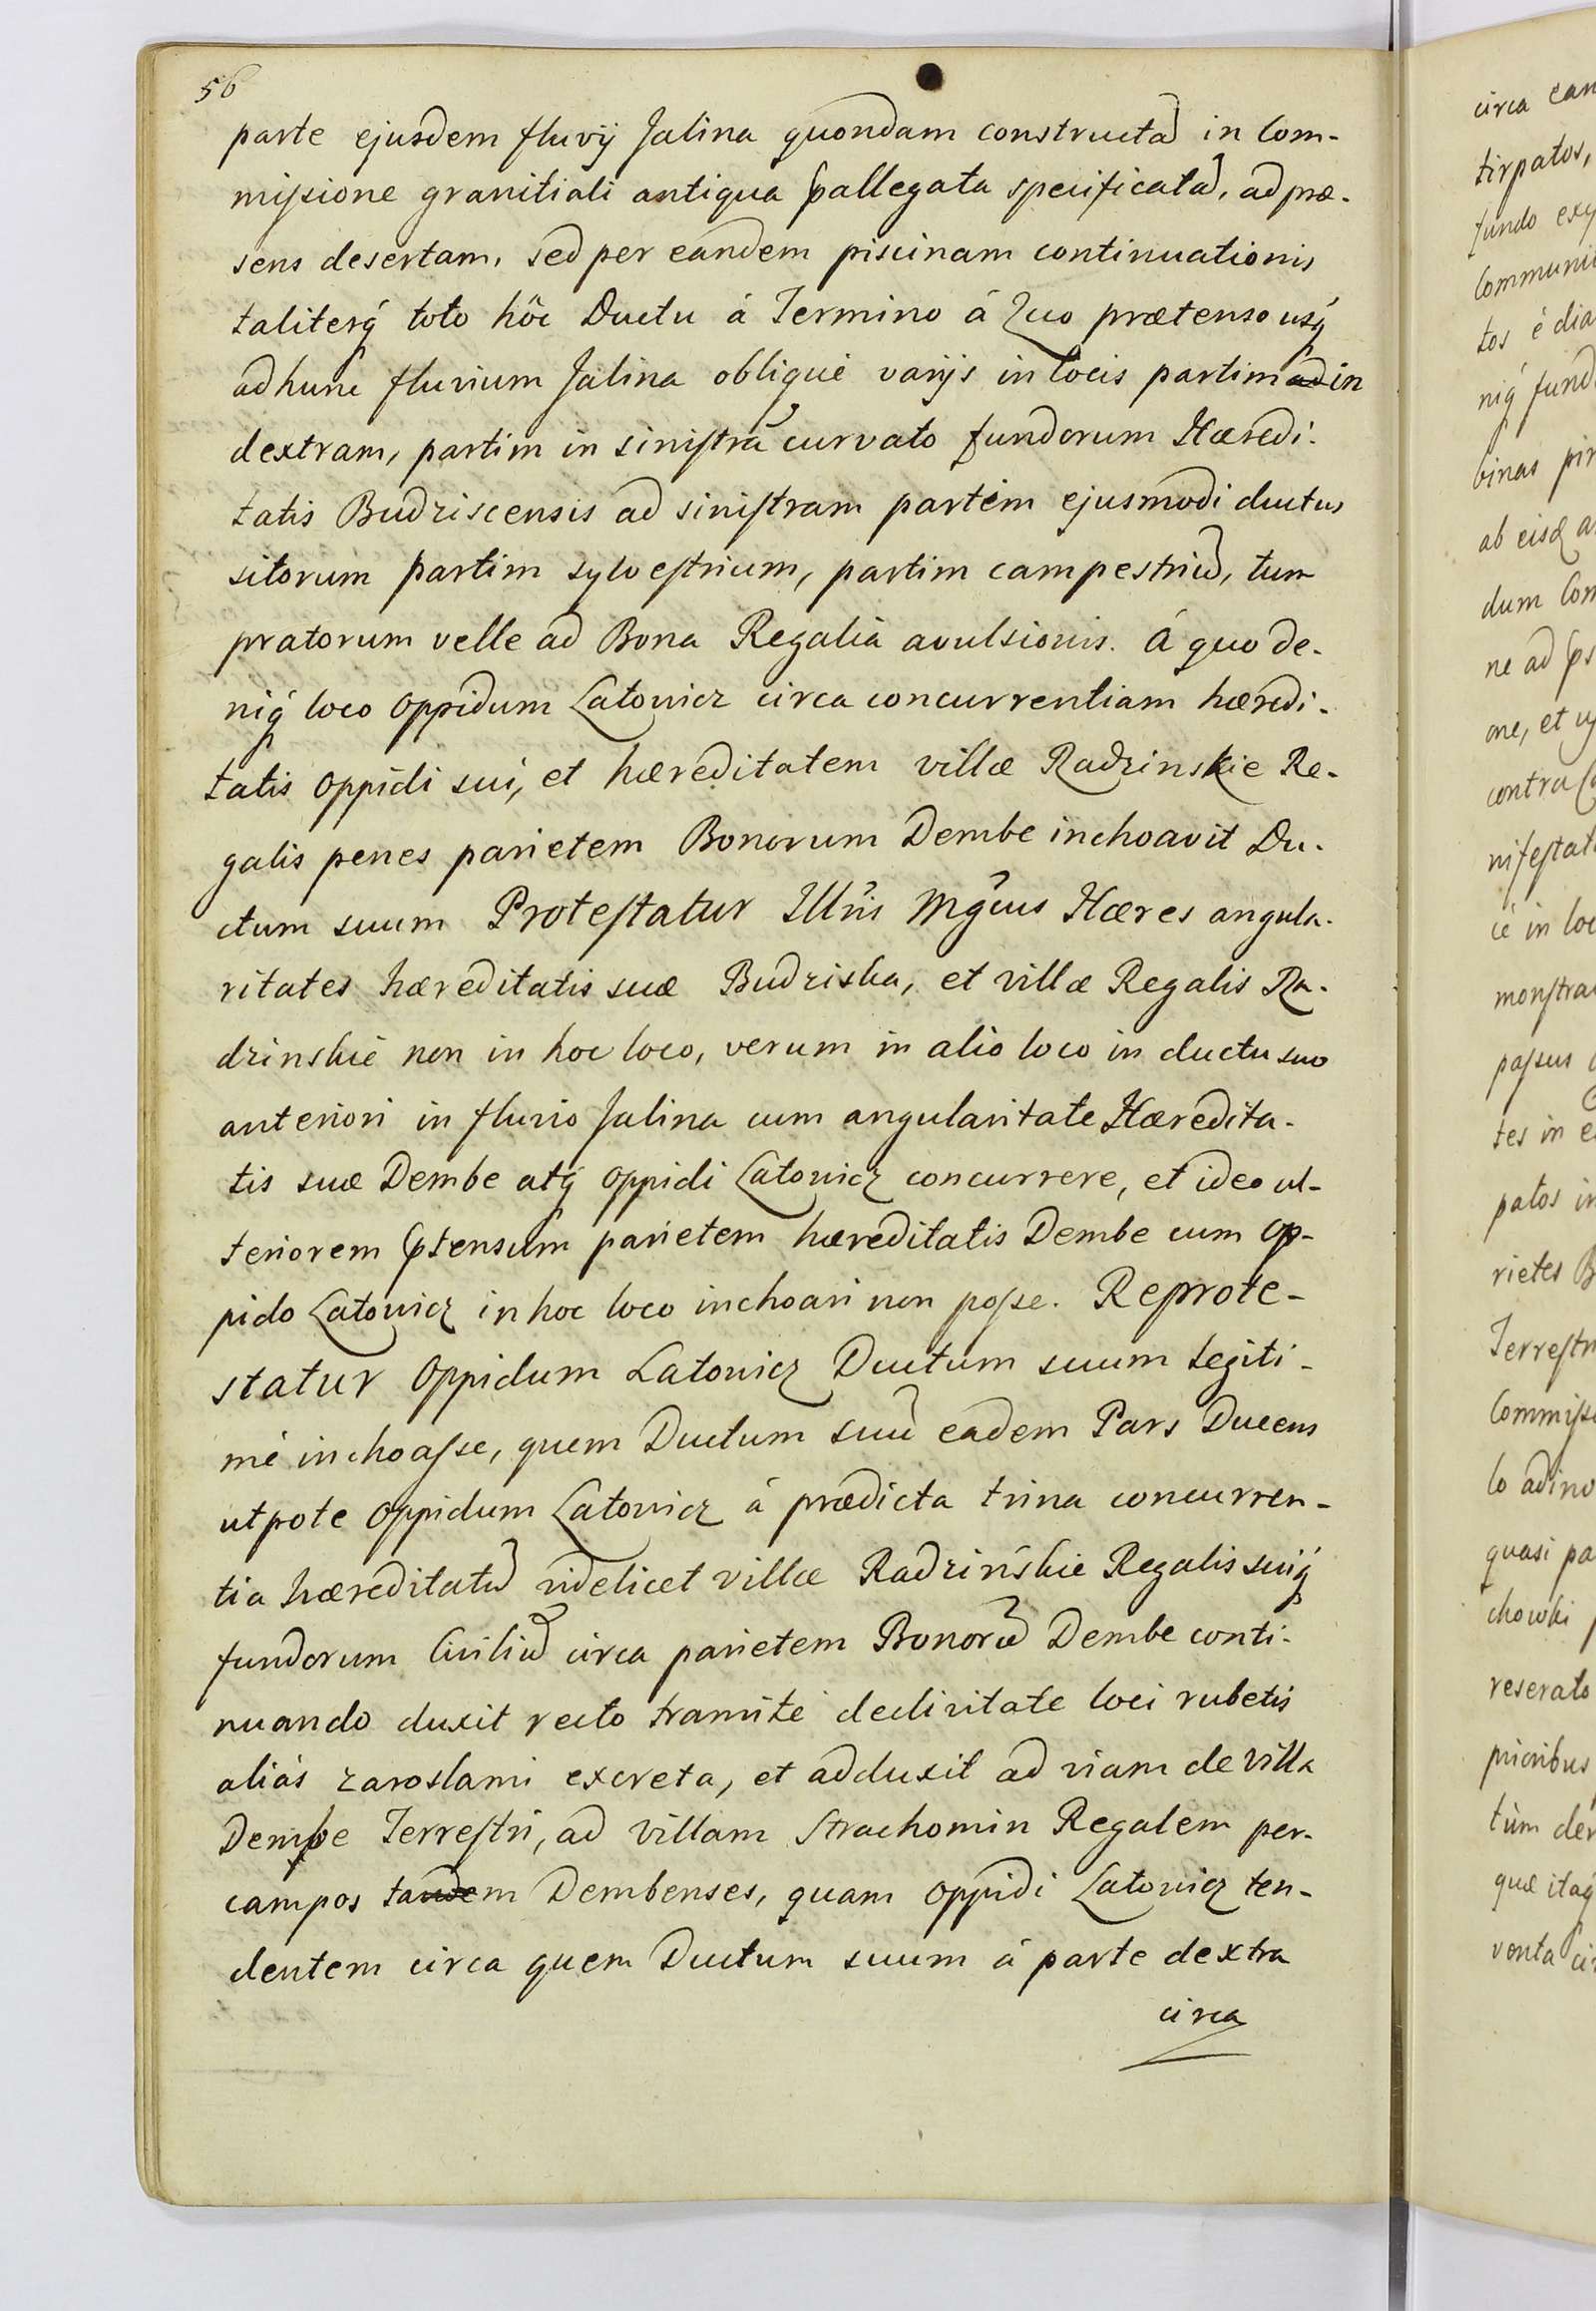 56
parte ejusdem fluvij Jalina quondam constructã in Com-
missione granitiali antiqua pallegata specificatã, ad præ-
sens desertam, sed per eandem piscinam continuationis
taliterq́ toto hôc Ductu á Termino á Quo prætenso usq́
ad hunc fluvium Jalina obliquè varijs in locis partim ad in
dextram, partim in sinistrã curvato fundorum Hæredi-
tatis Budziscensis ad sinistram partem ejusmodi ductus
sitorum partim sylvestrium, partim campestriũ, tum
pratorum velle ad Bona Regalia avulsionis. Á quo de-
niq́ loco Oppidum Latowicz circa concurrentiam hæredi-
tatis Oppidi sui, et hæreditatem villæ Radzinskie Re-
galis penes parietem Bonorum Dembe inchoavit Du-
ctum suum Protestatur Illr̃is Mgc̃us Hæres angula-
ritates hæreditatis suæ Budziska, et villæ Regalis Ra-
dzinskie non in hoc loco, verum in alio loco in ductu suo
anteriori in fluvio Jalina cum angularitate Hæredita-
tis suæ Dembe atq́ Oppidi Latowicz concurrere, et ideo ul-
teriorem ptensum parietem hæreditatis Dembe cum Op-
pido Latowicz in hoc loco inchoari non posse. Reprote-
statur Oppidum Latowicz Ductum suum legiti-
mè inchoasse, quem Ductum suũ eadem Pars Ducens
utpote Oppidum Latowicz á prædicta trina concurren-
tia hæreditatũ videlicet villæ Radzińskie Regalis suiq́
fundorum Civiliũ circa parietem Bonorũ Dembe conti-
nuando duxit recto tramite declivitate loci rubetis
aliás zaroslami excreta, et adduxit ad viam de villa
Dembe Terrestri, ad villam Strachomin Regalem per
campos tandem Dembenses, quam Oppidi Latowicz ten-
dentem circa quem Ductum suum á parte dextra
circa
circa
tirpatos,
fundo
tos é
niq́
binas
dum
ne ad
one, et
contra
in
tes in
patos
lo
quasi
reserato
prioribus
tùm
quæ itaq́